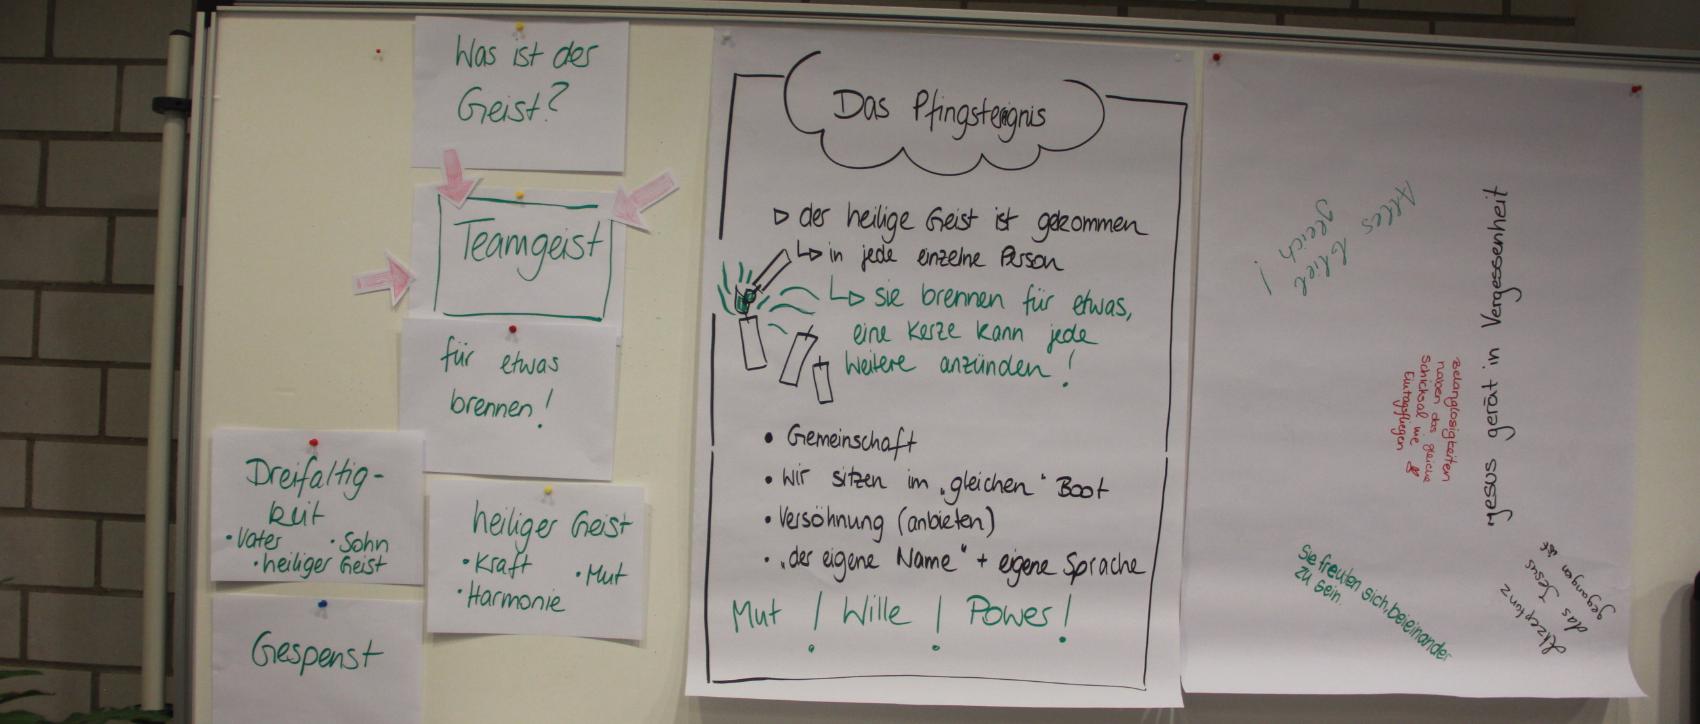 Was ist der
Geist?
Teamgeist
für etwas
brennen!
Dreifaltig-
keit
• Vater • Sohn
• heiliger Geist
heiliger Geist
• Kraft • Mut
• Harmonie
Gespenst
Das Pfingstereignis
▷ der heilige Geist ist gekommen
↳ in jede einzelne Person
↳ sie brennen für etwas,
eine Kerze kann jede
weitere anzünden!
• Gemeinschaft
• Wir sitzen im „gleichen“ Boot
• Versöhnung (anbieten)
• „der eigene Name“ + eigene Sprache
Mut! Wille! Power!
Alles
blieb
gleich!
Jesus gerät in Vergessenheit
Belanglosigkeiten
haben das gleiche
Schicksal wie
Eintagsfliegen
Sie freuten sich, beieinander
zu sein.
Akzeptanz
das Jesus
gegangen ist